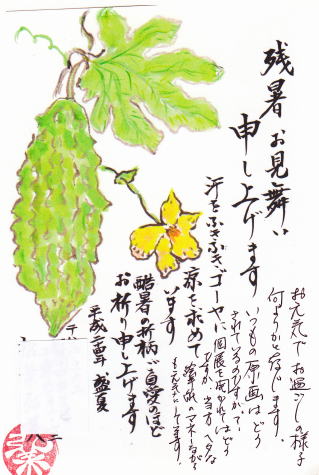 残暑お見舞い
申し上げます
汗をふきふき、ゴーヤーに
涼を求めて
います
酷暑の折柄ご自愛のほど
お祈り申し上げます
平成 年 盛夏
お元気でお過ごしの様子
何よりと存じます
いつもの原画はどう
されているのですか?
個展を開かれてはどう
ですか、当方 ヘタな